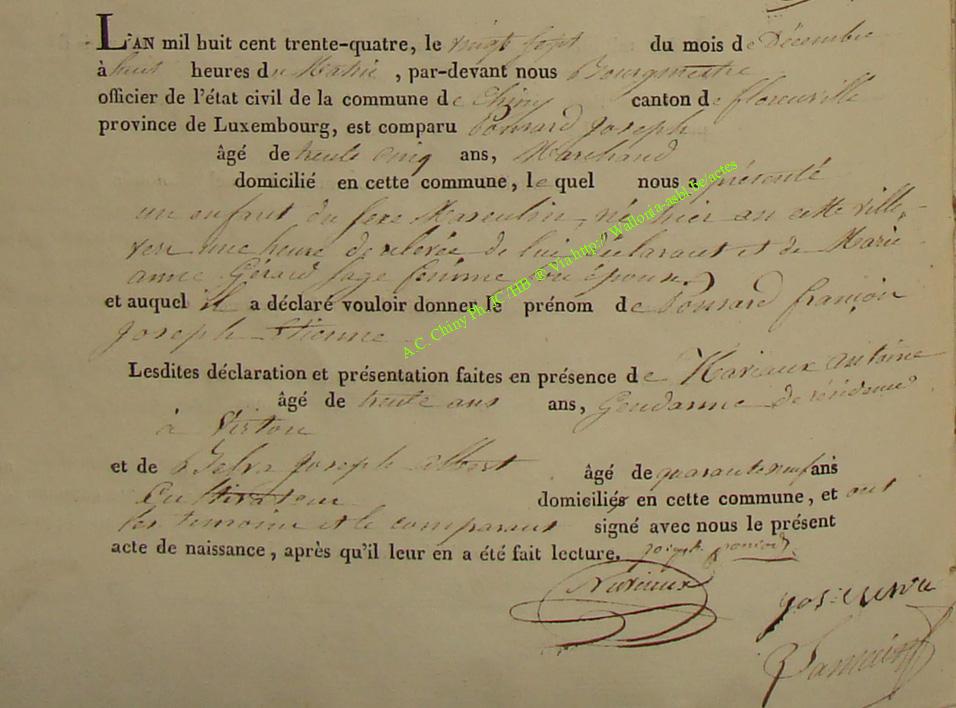 L'AN mil huit cent trente-quatre, le vingt sept du mois de Décembre
à huit heures du Matin, par-devant nous Bourgmestre
officier de l'état civil de la commune de Chiny canton de florenville
province de Luxembourg, est comparu Ponsard Joseph
âgé de trente cinq ans, Marchand
domicilié en cette commune, le quel nous a présenté
un enfant du sexe Masculin, né hier en cette ville,
vers une heure de relevée de lui déclarant et de Marie
anne Gérard sage femme son épouse.
et auquel il a déclaré vouloir donner le prénom de Ponsard françois
Joseph Etienne
Lesdites déclaration et présentation faites en présence de Mariaux antoine
âgé de trente ans ans, Gendarme de résidence
à Virton
et de Joseph albert âgé de quarante neuf ans
Cultivateur domiciliés en cette commune, et ont
les temoins et le comparant signé avec nous le présent
acte de naissance, après qu'il leur en a été fait lecture. joseph ponsard
A.C. Chiny Ph. JC /HB ® Via http:// Wallonia-asbl.be/actes